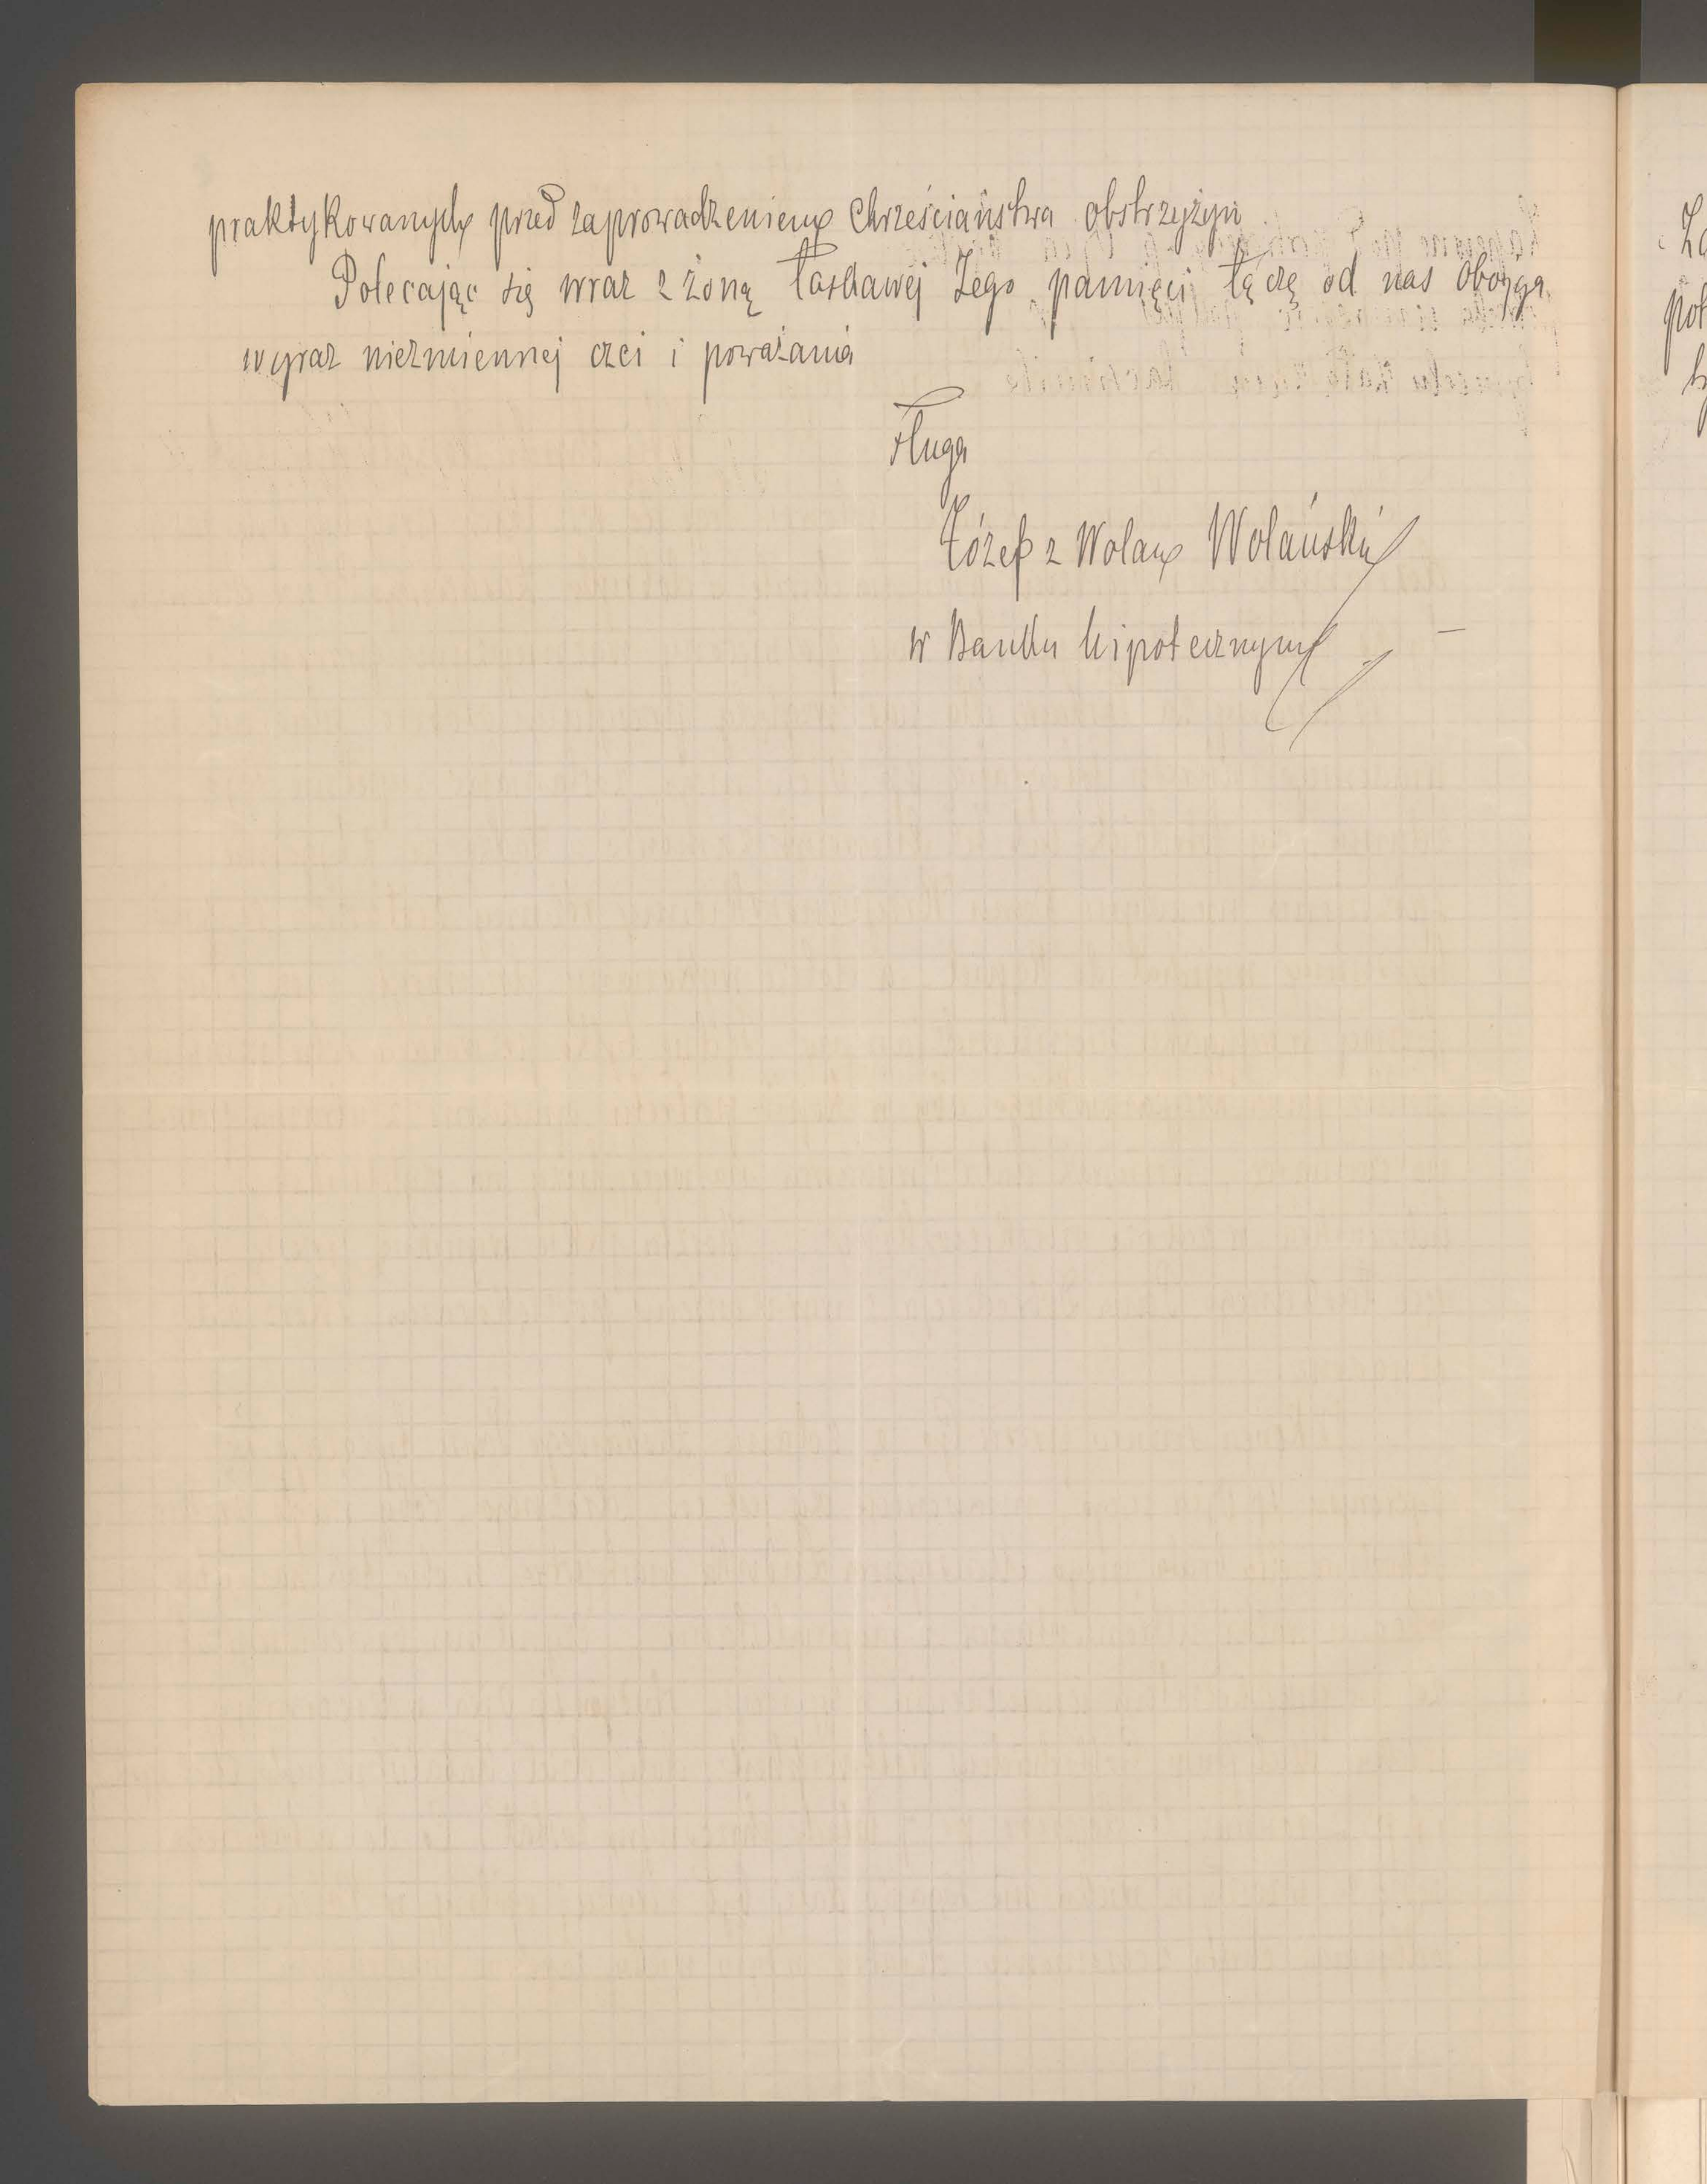 praktykowanych przed zaprowadzeniem Chrześciaństwa obstrzyżyn
Polecając się wraz z żoną łaskawej Jego pamięci łączę od nas obojga
wyraz niezmiennej czci i poważania
sługa
Józef z Wolan Wolański
w Banku hipotecznym